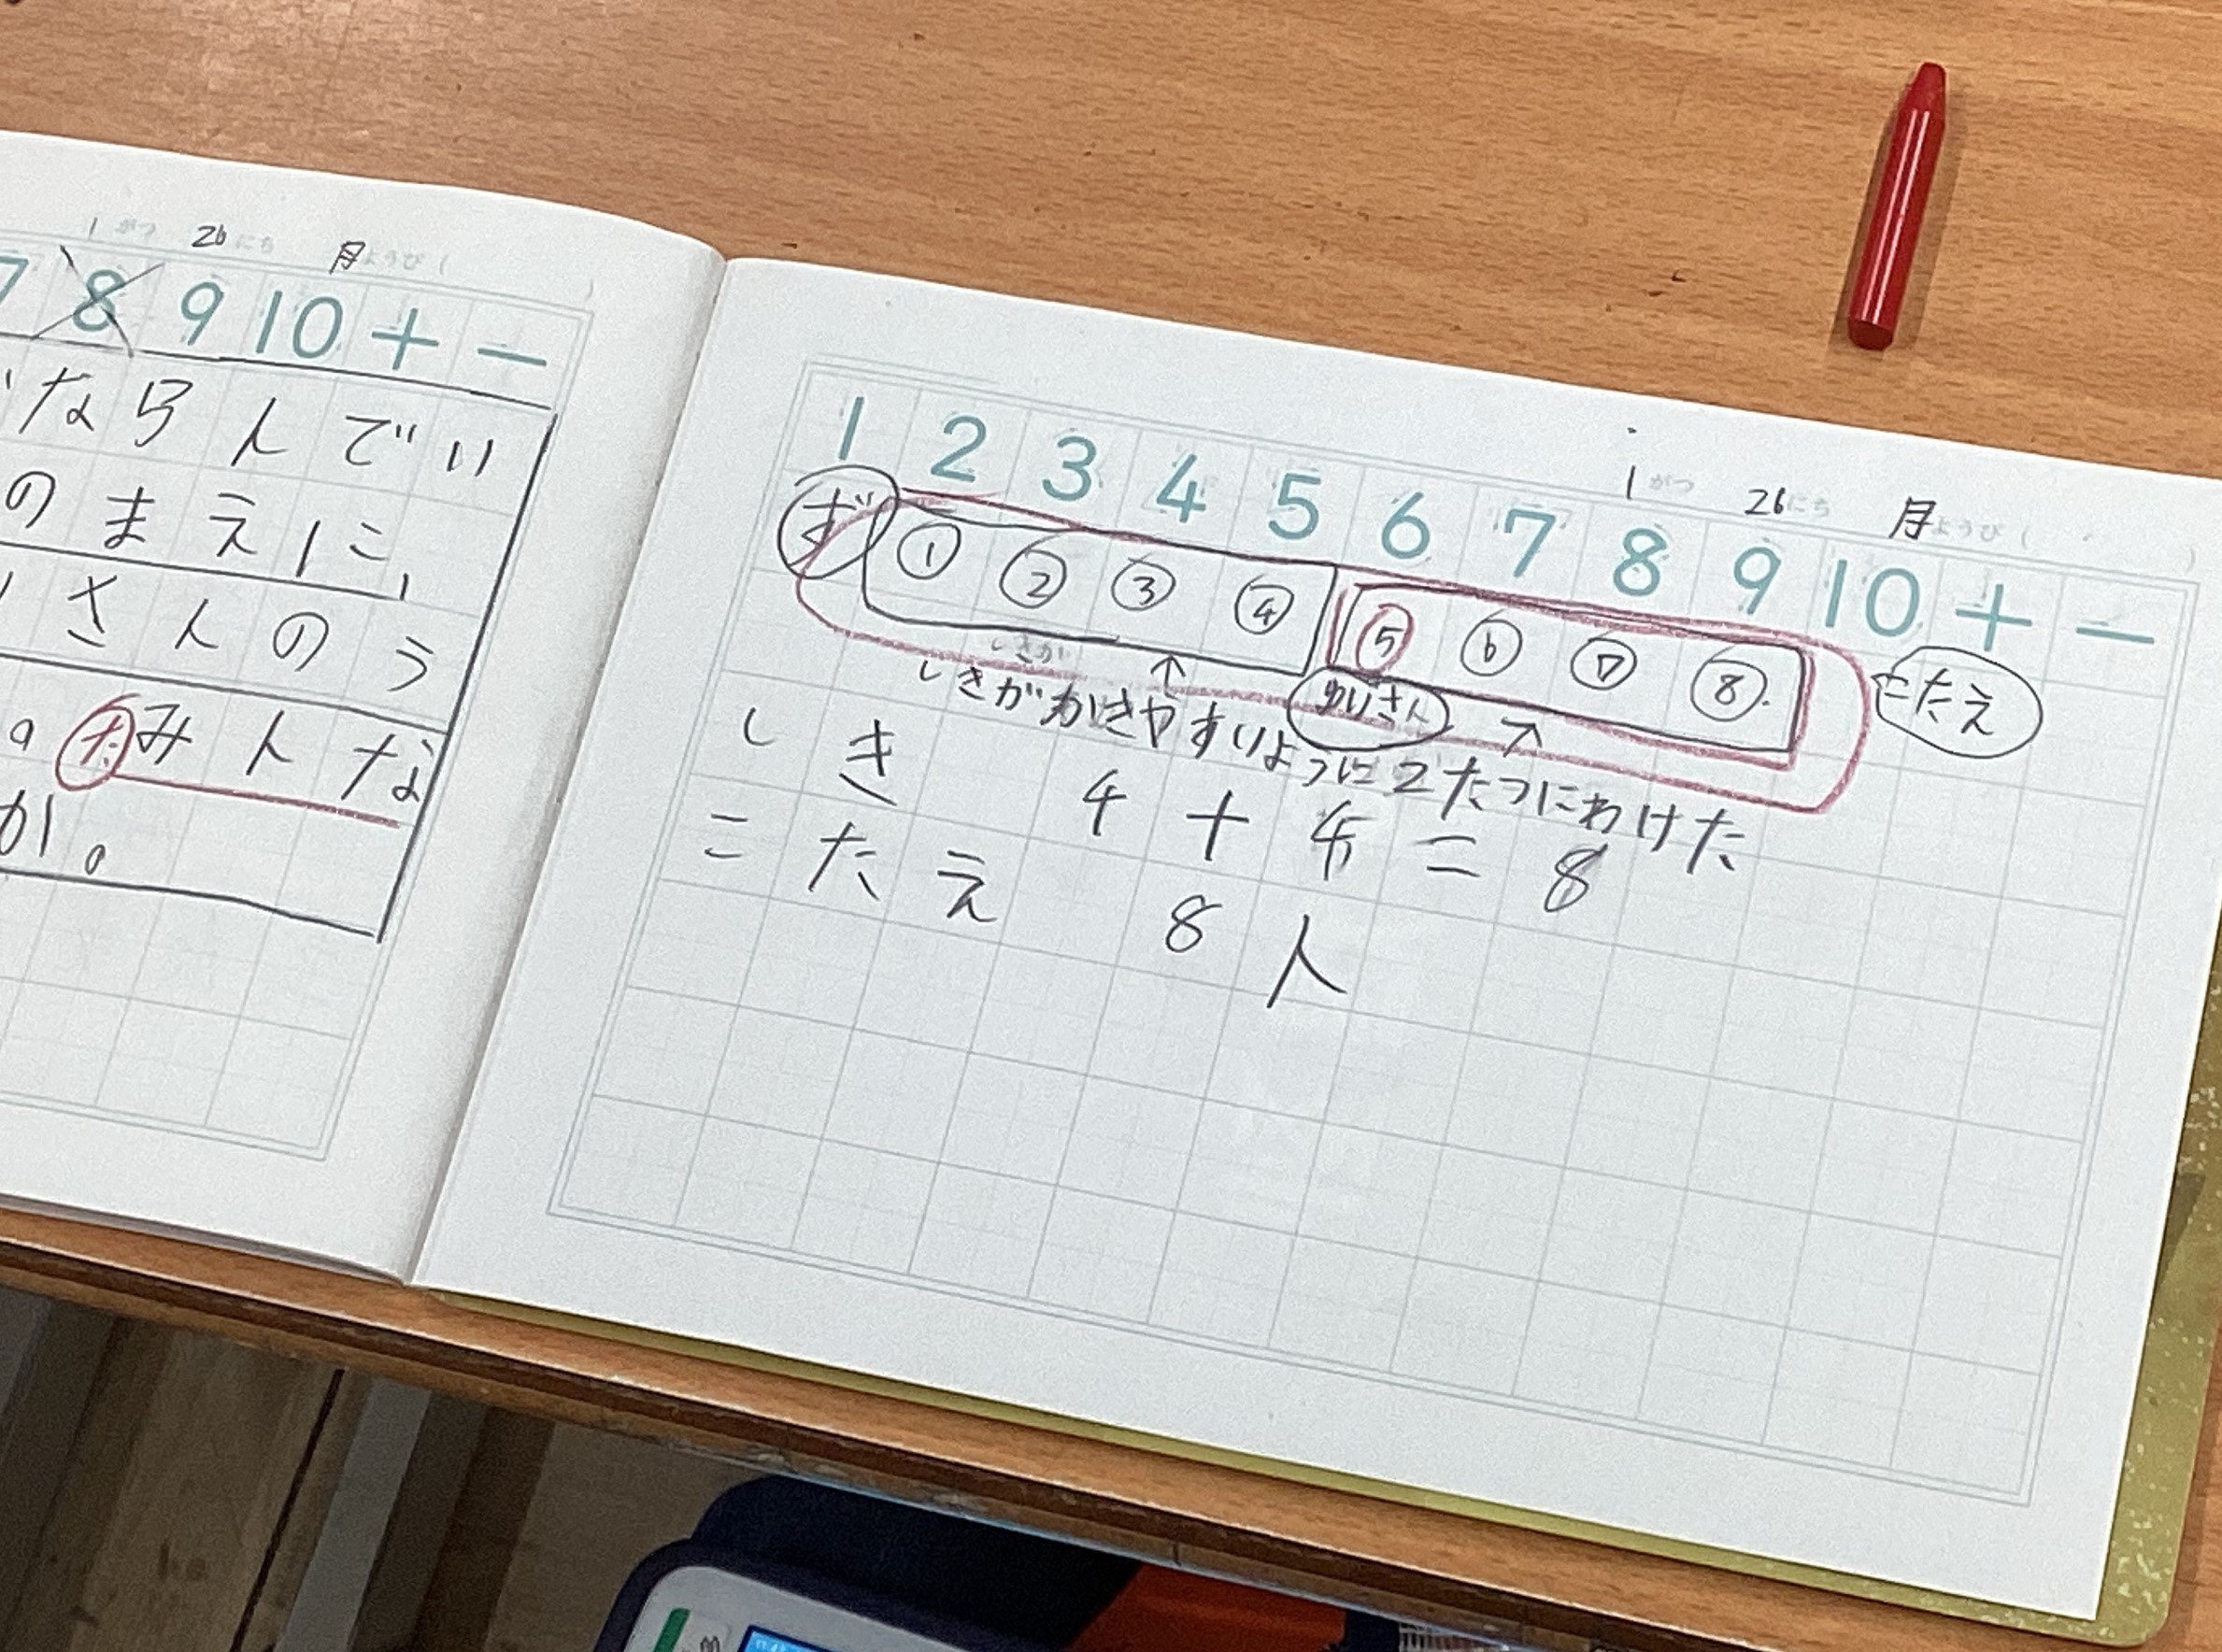 1がつ 26にち 月ようび(
)
7 8 9 10 + −
ならんでい
のまえに、
さんのう
。たみんな
か。
1がつ 26にち 月ようび( )
1 2 3 4 5 6 7 8 9 10 + −
ず ① ② ③ ④ ⑤ ⑥ ⑦ ⑧ こたえ
↑ ゆいさん ↑
しきがかきやすいように2たつにわけた
しき 4+4=8
こたえ 8人